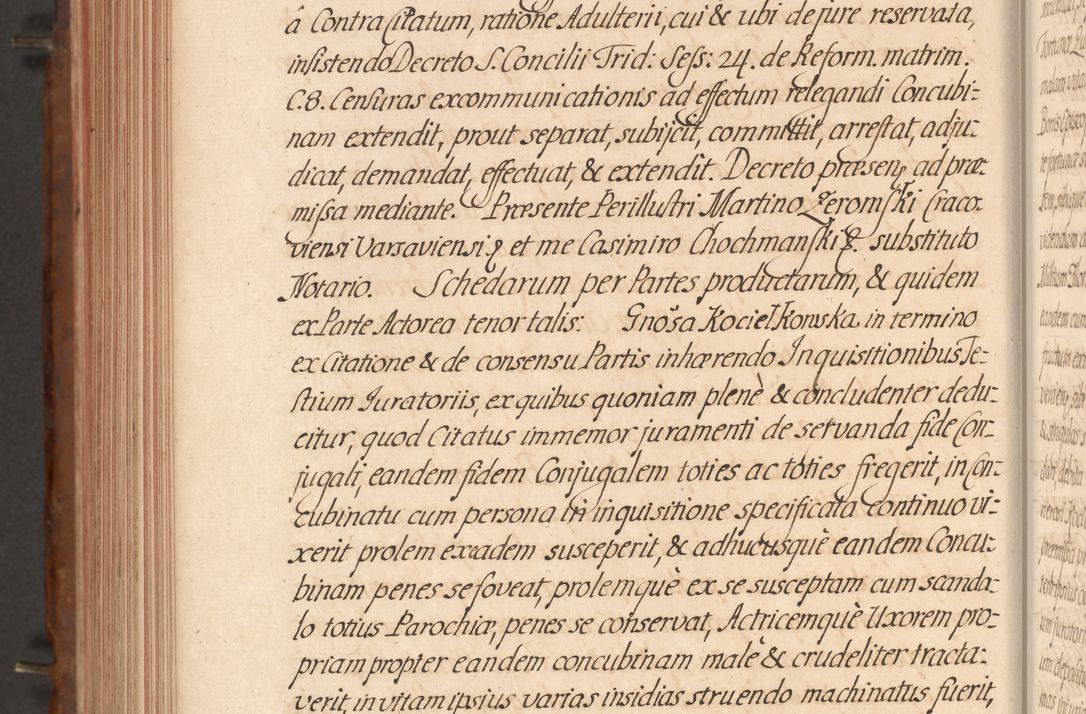 â Contra Citatum, ratione Adulterii, cui & ubi de jure reservata,
insistendo Decreto S. Concilii Trid: Sess: 24. de Reform. matrim.
C. 8. Censuras excommunicationis ad effectum relegandi Concubi-
nam extendit, prout separat, subijcit, committit, arrestat, adju-
dicat, demandat, effectuat, & extendit. Decreto præsenę ad præ-
missa mediante. Præsente Perillustri Martino Zeromski Craco-
viensi Varsaviensię et me Casimiro Chochmanski substituto
Notario. Schedarum per Partes productarum, & quidem
ex Parte Actorea tenor talis: Gnősa Kociełkowska in termino
ex Citatione & de consensu Partis inhærendo Inquisitionibus Te-
stium Juratoriis, ex quibus quoniam plenè & concludenter dedu-
citur, quod Citatus immemor juramenti de servanda fide Con-
jugali, eandem fidem Conjugalem toties ac toties fregerit, in Con-
cubinatu cum persona in inquisitione specificata continuo vi-
xerit prolem ex eadem susceperit, & adhucusquè eandem Concu-
binam penes se foveat, prolemquè ex se susceptam cum scanda-
lo totius Parochiæ, penes se conservat, Actricemquè Uxorem pro-
priam propter eandem concubinam malè & crudeliter tracta-
verit, in vitam ipsius varias insidias struendo machinatus fuerit,